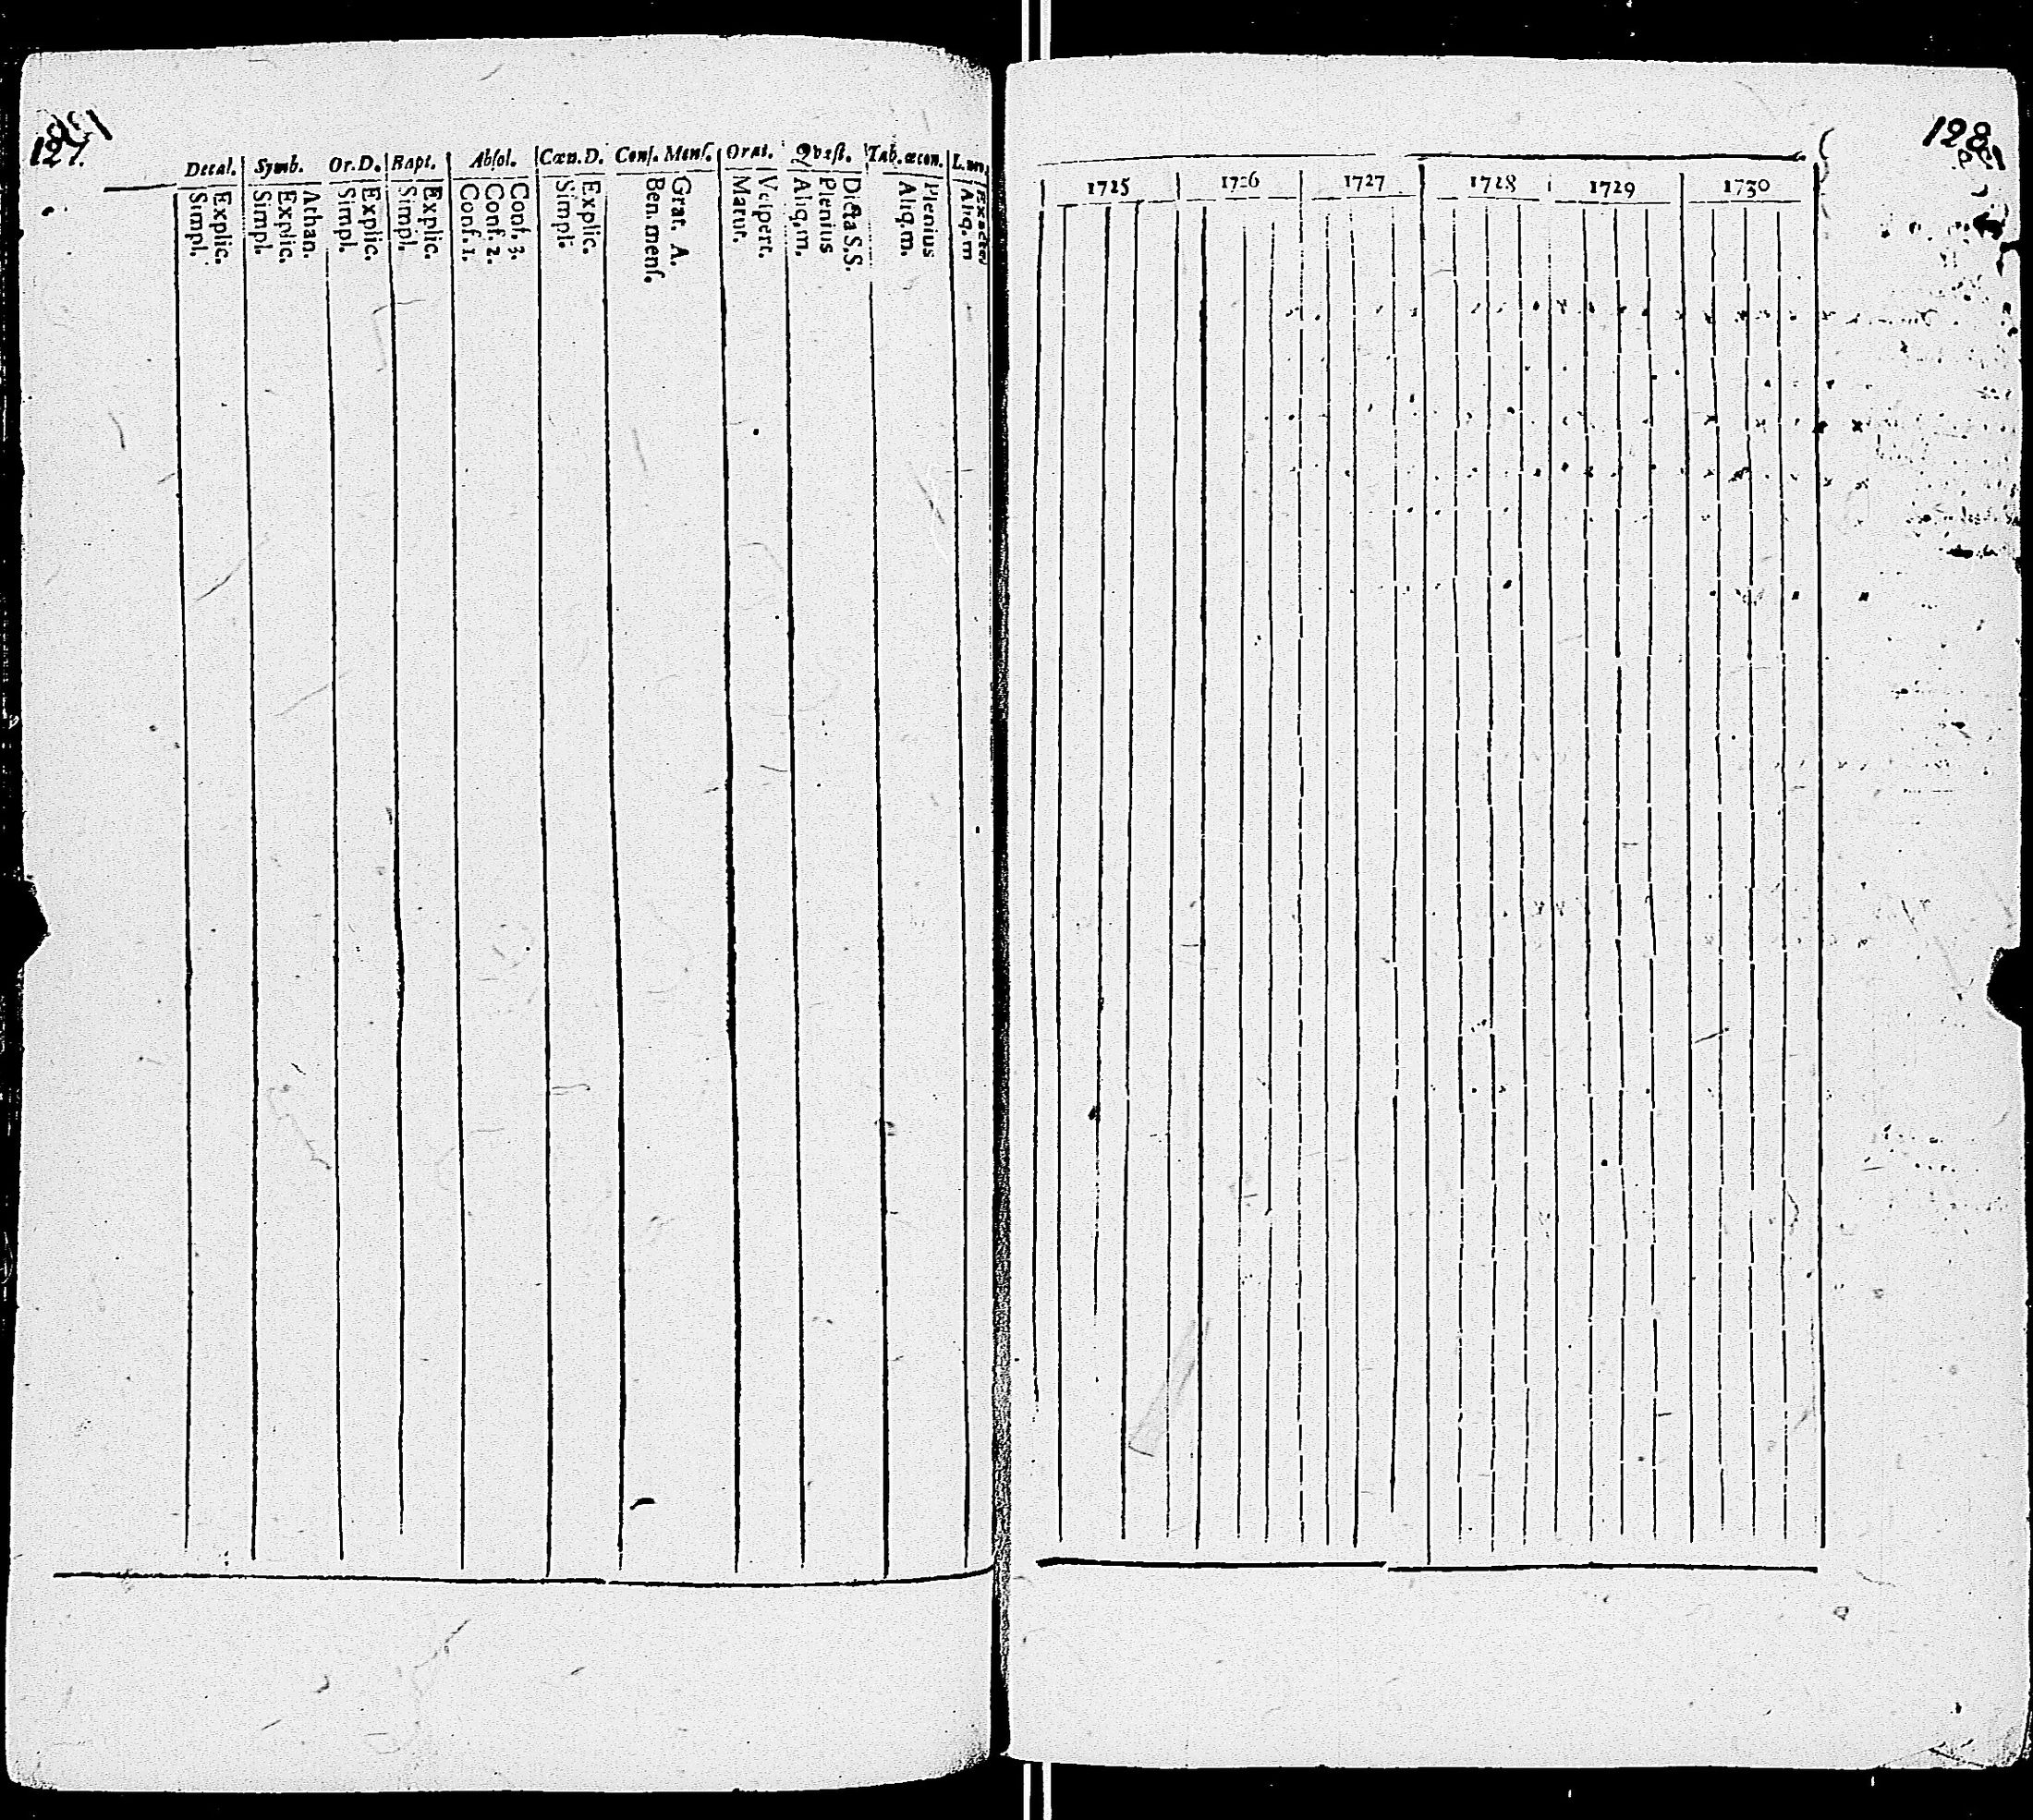 127.
Decal. Symb. Or. D. Bapt. Absol. Cœn. D. Conf. Mens. Orat. Qvæst. Tab. œcon.
Simpl. Explic. Simpl. Explic. Athan. Simpl. Explic. Simpl. Explic. Conf. 1. Conf. 2. Conf. 3. Simpl. Explic. Ben. mens. Grat. A. Matut. Vespert. Aliq. m. Plenius Dicta S. S. Aliq. m. Plenius Aliq. m
128
1725 1726 1727 1728 1729 1730